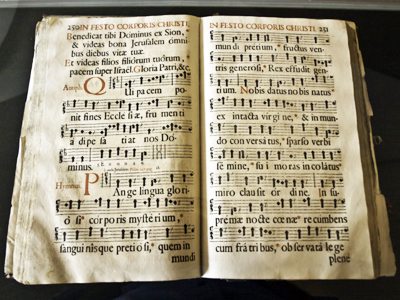 250 IN FESTO CORPORIS CHRISTI.
Benedicat tibi Dominus ex Sion,*
& videas bona Jerusalem omni
bus diebus vitæ tuæ.
Et videas filios filiorum tuorum,*
pacem super Israel. Gloria Patri, &c.
Antiph. Qui pa cem po
nit fines Eccle si æ, fru men ti
a di pe sa ti at nos Do-
minus.
Hymnus. P An ge lingua glori-
ó si* cor po ris my sté ri um,*
sangui nis que pre ti o si,* quem in
mundi
IN FESTO CORPORIS CHRISTI. 251
mun di pré ti um,* fructus ven-
tris gene ro si,* Rex effudit gen-
ti um. Nobis datus no bis natus*
ex intacta vir gi ne,* & in mun-
do con ver sá tus,* sparso verbi
sé mi ne,* su i mo ras in co lá tus*
mi ro clau sit or di ne. In su-
præ mæ nocte cœ næ* re cúmbens
cum frá tri bus,* ob ser va tâ le ge
plenè